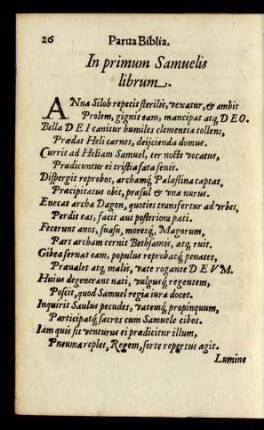 26 Parua Biblia.
In primum Samuelis
librum.
ANna Siloh repetit sterilis, vexatur, & ambit
Prolem, gignit eam, mancipat atq; DEO.
Bella DEI canitur humiles clementia tollens,
Prædat Heli carnes, deijcienda domus.
Currit ad Heliam Samuel, ter nocte vocatus,
Prædicuntur ei tristia fata senis.
Dispergit reprobos, archamq́; Palæstina captat,
Præcipitatus obit, præsul & vna nurus.
Enecat archa Dagon, quoties transfertur ad vrbes,
Perdit eas, facit aut posteriora pati.
Fecerunt anos, suasu, moresq́; Magorum,
Pars archam cernit Bethsamis, atq; ruit.
Gibea seruat eam, populus reprobatq́; penates,
Præualet atq; malis, vate rogante DEVM.
Huius degenerant nati, vulgusq́; regentem,
Poscit, quod Samuel regia iura docet.
Inquirit Saulus pecudes, vatemq́; propinquum,
Participatq́; sacros cum Samuele cibos.
Iam quis sit venturus ei prædicitur illum,
Pneuma replet, Regem, sorte repertus agit.
Lumine